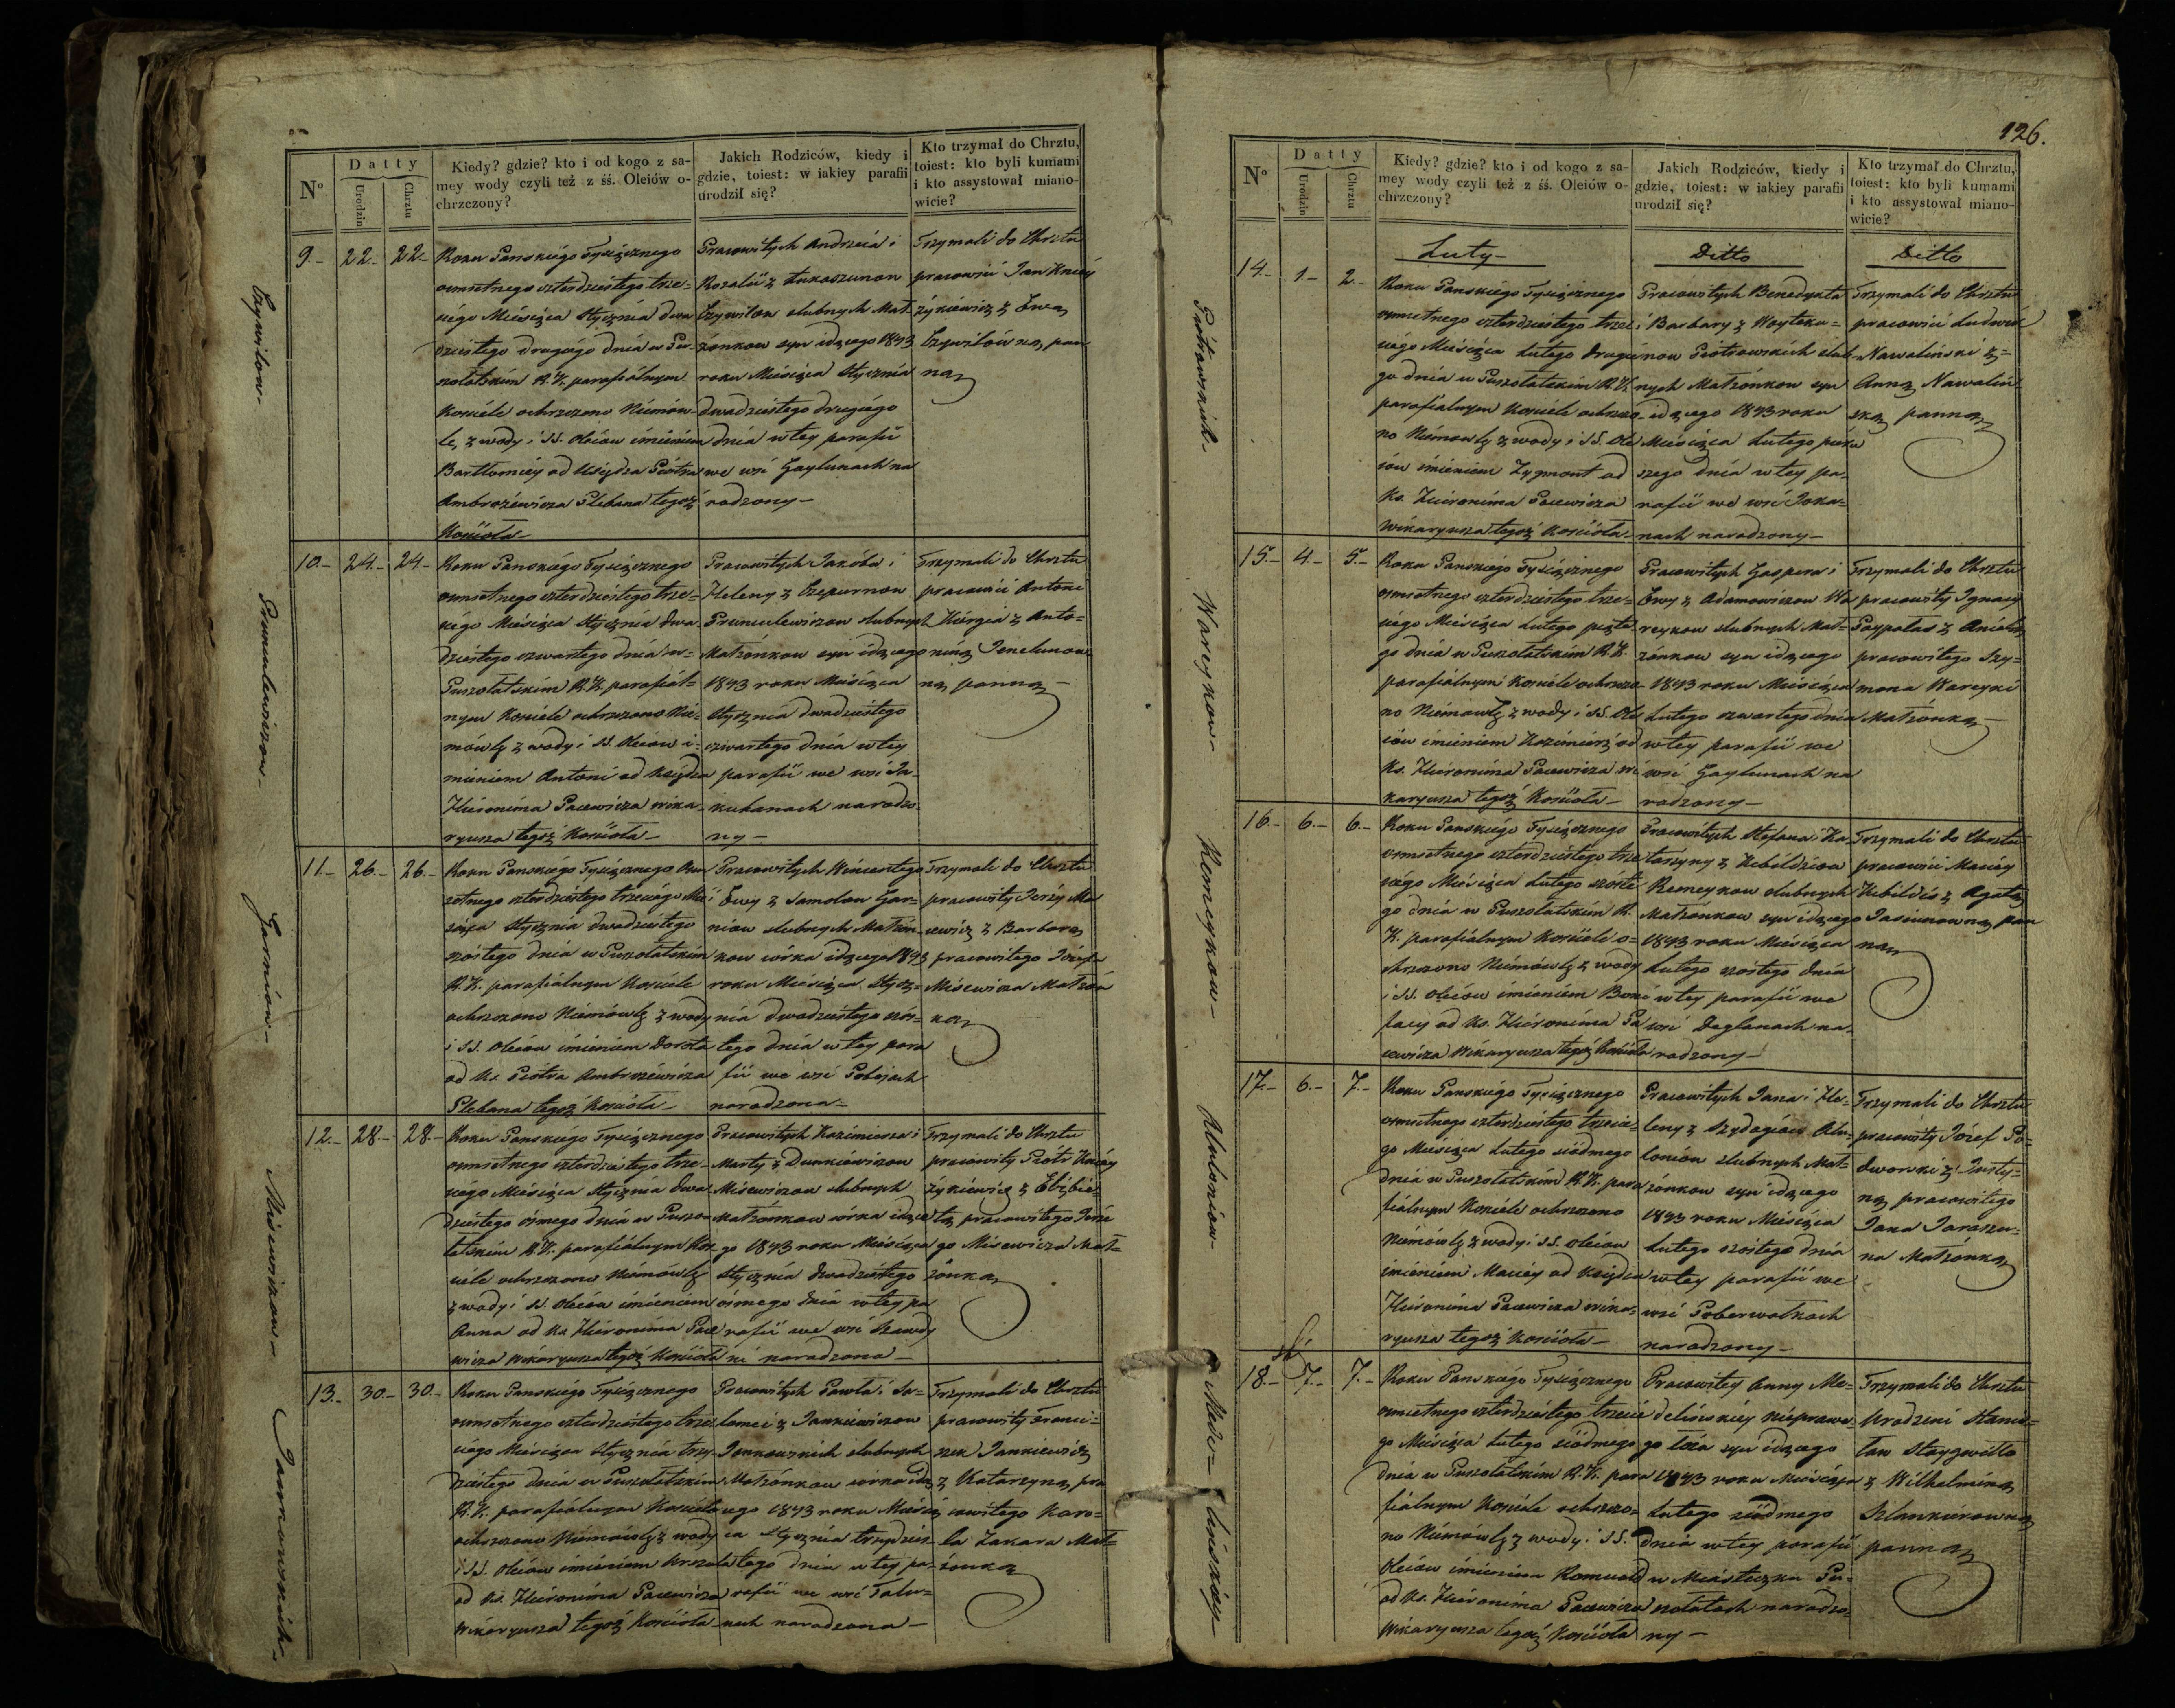 N°
Datty
Urodzin
Chrztu
Kiedy? gdzie? kto i od kogo z sa-
mey wody czyli też z śś. Oleiów o-
chrzczony?
Jakich Rodziców, kiedy i
gdzie, toiest: w iakiey parafii
urodził się?
Kto trzymał do Chrztu,
toiest: kto byli kumami
i kto assystował miano-
wicie?
9.- 22.- 22-
Roku Panskiégo Tysiącznego
osmsetnego czterdziestego trze-
ciégo Miésiąca Stycznia dwa
dziéstego drugiégo dnia w Pu-
szolatskim R.K. parafiàlnym
Kosciéle ochrzczono Niémów-
lę z wody i SS. Oleiów imieniem
Bartłomiéy od Księdza Piotra
Ambrożéwicza Plebana tegoż
Kosciola-
Pracowitych Andrzeia i
Rozalii z Łukaszunow
Czywilow slubnych Mał-
żonkow syn idącego 1843
roku Miésiąca Stycznia
dwadziéstego drugiégo
dnia w tey parafii
we wsi Gaylunach na
rodzony-
Trzymali do Chrztu
pracowici Jan Kniéż
żykiéwicz z Ewą
Czywilówną pan
ną
Czywilow-
10.- 24.- 24-
Roku Panskiégo Tysiącznego
osmsetnego czterdziestego trze-
ciégo Miésiąca Stycznia dwa
dziéstego czwartego dnia w-
Puszolatskim R.K. parafiál-
nym Kosciele ochrzczono Nie-
mówlę z wody i SS. Oleiów i-
mieniem Antoni od Księdza
Hiéronima Pacewicza wika-
ryusza tegoż Kosciola-
Pracowitych Jakóba i
Heleny z Czepurnow
Prunculewiczow slubnych
Małżónkow syn idącego
1843 roku Miésiąca
Stycznia dwadziéstego
czwartego dnia w tey
parafii we wsi Ja-
kubanach narodzo-
ny-
Trzymali do Chrztu
pracowici Antoni
Kiérgia z Anto-
niną Jenelunow
ną panną-
11.- 26.- 26.-
Roku Panskiégo Tysiącznego Osm
setnego czterdziéstego trzeciégo Mié
siąca Stycznia dwadziéstego
szóstego dnia w Puszolatskim
R.K. parafiàlnym Kosciéle
ochrzczono Niémówlę z wody
i SS. Oleiów imieniem Dorota
od Ks. Piotra Ambrożéwicza
Plebana tegoż Kosciola-
Pracowitych Wincentego
i Ewy z Samolow Gar-
niow slubnych Małżón-
kow córka idącego 1843
roku Miésiąca Stycz-
nia dwadziéstego szós-
tego dnia w tey para
fii we wsi Pobijach
narodzona-
Trzymali do Chrztu
pracowity Jerży Mi
cewicz z Barborą
pracowitego Józefa
Misewicza Małżón
ką
Garniow-
12.- 28.- 28.-
Roku Panskiégo Tysiącznego
osmsetnego czterdziéstego trze-
ciégo Miésiąca Stycznia dwa
dziéstego ósmego dnia w Puszo
latskim R.K. parafiàlnym Kos
ciéle ochrzczono Niémówlę
z wody i SS. Oleiów imieniem
Anna od Ks. Hiéronima Pace
wicza Wikaryusza tegoż Kosciola
Pracowitych Kazimierza i
Marty z Dunkiéwiczow
Misewiczow slubnych
Małżónkow córka idące
go 1843 roku Miésiąca
Stycznia dwadziéstego
ósmego dnia w tey pa
rafii we wsi Szawdy
ni narodzona-
Trzymali do Chrztu
pracowity Piotr Kniéż
żykiéwicz z Elżbie-
tą pracowitego Jerże
go Misewicza Mał-
żónką
Misewiczow-
13.- 30.- 30.-
Roku Panskiégo Tysiącznego
osmsetnego czterdziéstego trze
ciégo Miésiąca Stycznia trzy-
dziéstego dnia w Puszolatskim
R.K. parafiàlnym Kosciele
ochrzczono Niémówlę z wody
i SS. Oleiów imieniem Urszula
od Ks. Hiéronima Pacewicza
Wikaryusza tegoż Kosciola
Pracowitych Pawła i Sa-
lomei z Jankiéwiczow
slubnych
Małżónkow córka idą
cego 1843 roku Miésią
ca Stycznia trzydziés-
tego dnia w tey pa-
rafii we wsi Talu-
nach narodzona-
Trzymali do Chrztu
pracowity Franci-
szek Jankiewicz
z Katarzyną pra
cowitego Karo-
la Zakara Mał-
żonką
126.
N°
Datty
Urodzin
Chrztu
Kiedy? gdzie? kto i od kogo z sa-
mey wody czyli też z śś. Oleiów o-
chrzczony?
Jakich Rodziców, kiedy i
gdzie, toiest: w iakiey parafii
urodził się?
Kto trzymał do Chrztu,
toiest: kto byli kumami
i kto assystował miano-
wicie?
Luty-
Ditto
Ditto
14.- 1- 2.-
Roku Panskiego Tysiącznego
osmsetnego czterdziestego trze
ciégo Miésiąca Lutego drugié
go dnia w Puszolatskim R.K.
parafialnym Kosciéle ochrzczo-
no Niémowlę z wody i SS. Ole
iów imieniem Zygmont od
Ks. Hiéronima Pacewicza
Wikaryusza tegoż Kosciola-
Pracowitych Benedykta
i Barbary z Woyteku-
now Piotrowskich slub
nych Małżónkow syn
idącego 1843 roku
Miésiąca Lutego pierw
szego dnia w tey pa-
rafii we wsi Joka-
nach narodzony-
Trzymali do Chrztu
pracowici Ludwik
Nawaliński z-
Anną Nawaliń
ską panną
15.- 4.- 5.-
Roku Panskiégo Tysiącznego
osmsetnego czterdziéstego trze-
ciégo Miésiąca Lutego piąte-
go dnia w Puszolatskim R.K.
parafialnym Kosciéle ochrzczo
no Niémowlę z wody i SS. Ole
iów imieniem Kazimierz od
Ks. Hiéronima Pacewicza Wi
karyusza tegoż Kosciola-
Pracowitych Gaspera i
Ewy z Adamowiczow Wa
reykow slubnych Mał-
żónkow syn idącego
1843 roku Miésiąca
Lutego czwartego dnia
w tey parafii we
wsi Gaylunach na
rodzony-
Trzymali do Chrztu
pracowity Ignacy
Poypalas z Anielą
pracowitego Szy-
mona Wareyki
Małżónką-
Wareykow-
16.- 6.- 6.-
Roku Panskiégo Tysiącznego
osmsetnego czterdziéstego trze
ciégo Miésiąca Lutego szóste
go dnia w Puszolatskim R.
K. parafiálnym Kosciole o-
chrzczono Niémówlę z wody
i SS. Oleiów imieniem Boni
facy od Ks. Hiéronima Pa
cewicza Wikaryusza tegoż Kosciola
Pracowitych Stefana i Ka
tarzyny z Kibildziow
Remeykow slubnych
Małżónkow syn idącego
1843 roku Miésiąca
Lutego szóstego dnia
w tey parafii we
wsi Deglanach na-
rodzony-
Trzymali do Chrztu
pracowici Maciéy
Kibildis z Agatą
Jasiunowną pan
ną
Remeykow-
17.- 6.- 7.-
Roku Panskiégo Tysiącznego
osmsetnego czterdziéstego trzecie-
go Miésiąca Lutego siódmego
dnia w Puszolatskim R.K. para
fiálnym Kosciéle ochrzczono
Niémówlę z wody i SS. Oleiów
imieniem Maciéy od Księdza
Hiéronima Pacewicza wika-
ryusza tegoż Kosciola-
Pracowitych Jana i He-
leny z Szydagiów Alu-
loniów slubnych Mał-
żónkow syn idącego
1843 roku Miésiąca
Lutego szóstego dnia
w tey parafii we
wsi Poberwałkach
narodzony-
Trzymali do Chrztu
pracowity Józef Po-
dworski z Justy-
ną pracowitego
Jana Jaraszu-
na Małżónką
18.- 7.- 7.-
Roku Panskiégo Tysiącznego
osmsetnego czterdziéstego trzecie
go Miésiąca Lutego siódmego
dnia w Puszolatskim R.K. para
fiálnym Kosciéle ochrzczo-
no Niémówlę z wody i SS.
Oleiów imieniem Romuald
od Ks. Hiéronima Pacewicza
Wikaryusza tegoż Kosciola
Pracowitey Anny Me-
delińskiéy niéprawe-
go łoża syn idącego
1843 roku Miésiąca
Lutego siódmego
dnia w tey parafii
w Miasteczku Pu-
szolatach narodzo-
ny-
Trzymali do Chrztu
Urodzeni Stanis-
ław Staygwiłło
z Wilhelminą
panną